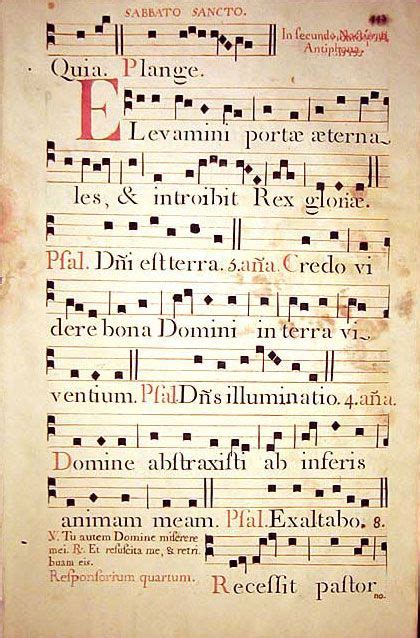 SABBATO SANCTO. 443
In secundo Nocturno
Antiphona.
Quia. Plange.
Elevamini portæ æterna
les, & introibit Rex gloriæ.
Psal. Dñi est terra. 5. aña. Credo vi
dere bona Domini in terra vi
ventium. Psal. Dñs illuminatio. 4. aña.
Domine abstraxisti ab inferis
animam meam. Psal. Exaltabo. 8.
V. Tu autem Domine miserere
mei. R. Et resuscita me, & retri
buam eis.
Responsorium quartum.
Recessit pastor
no.